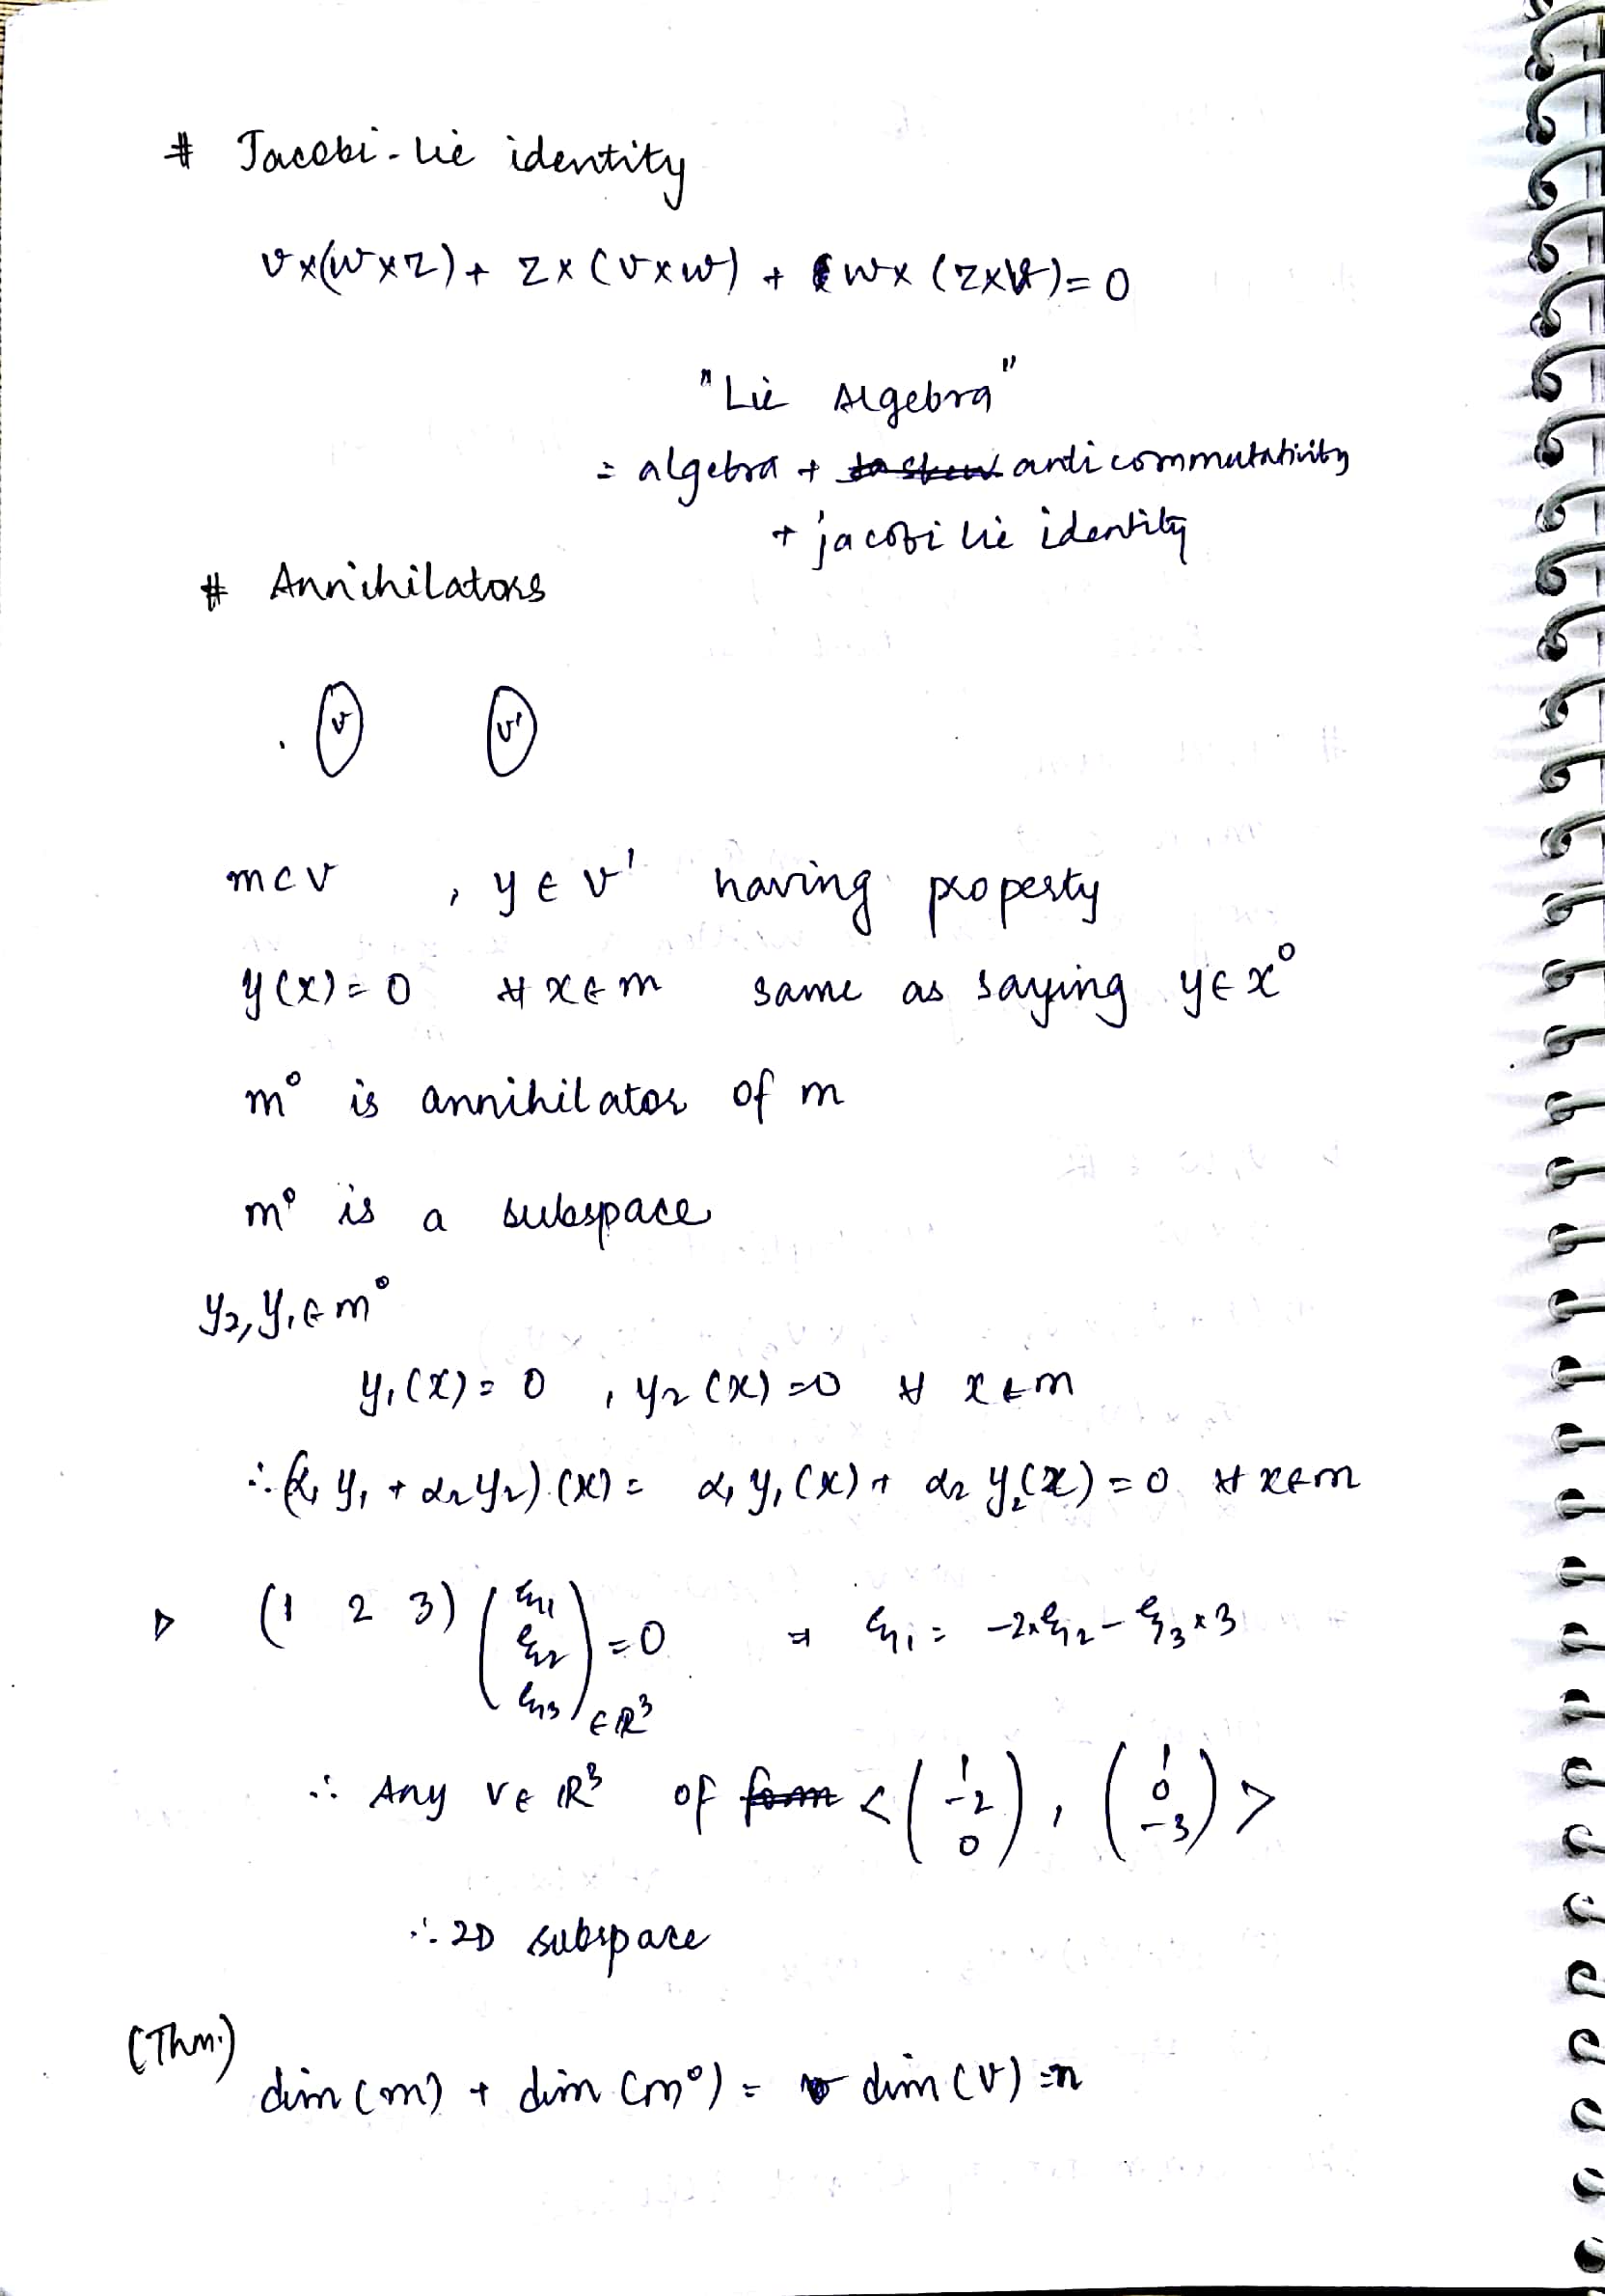 # Jacobi-Lie identity
v×(w×z) + z×(v×w) + w×(z×v) = 0
"Lie Algebra"
= algebra + anticommutativity
+ jacobi lie identity
# Annihilators
v v'
m⊂v , y ∈ v' having property
y(x) = 0 ∀ x∈m same as saying y∈x⁰
m⁰ is annihilator of m
m⁰ is a subspace
y₂, y₁ ∈ m⁰
y₁(x) = 0 , y₂(x) = 0 ∀ x∈m
∴ (α₁y₁ + α₂y₂)(x) = α₁y₁(x) + α₂y₂(x) = 0 ∀ x∈m
▷ (1 2 3) (ξ₁ ξ₂ ξ₃) = 0 ⇒ ξ₁ = -2×ξ₂ - ξ₃×3
∈ ℝ³
∴ Any v∈ ℝ³ of form < (1 -2 0) , (1 0 -3) >
∴ 2D subspace
(Thm.)
dim(m) + dim(m⁰) = dim(v) = n